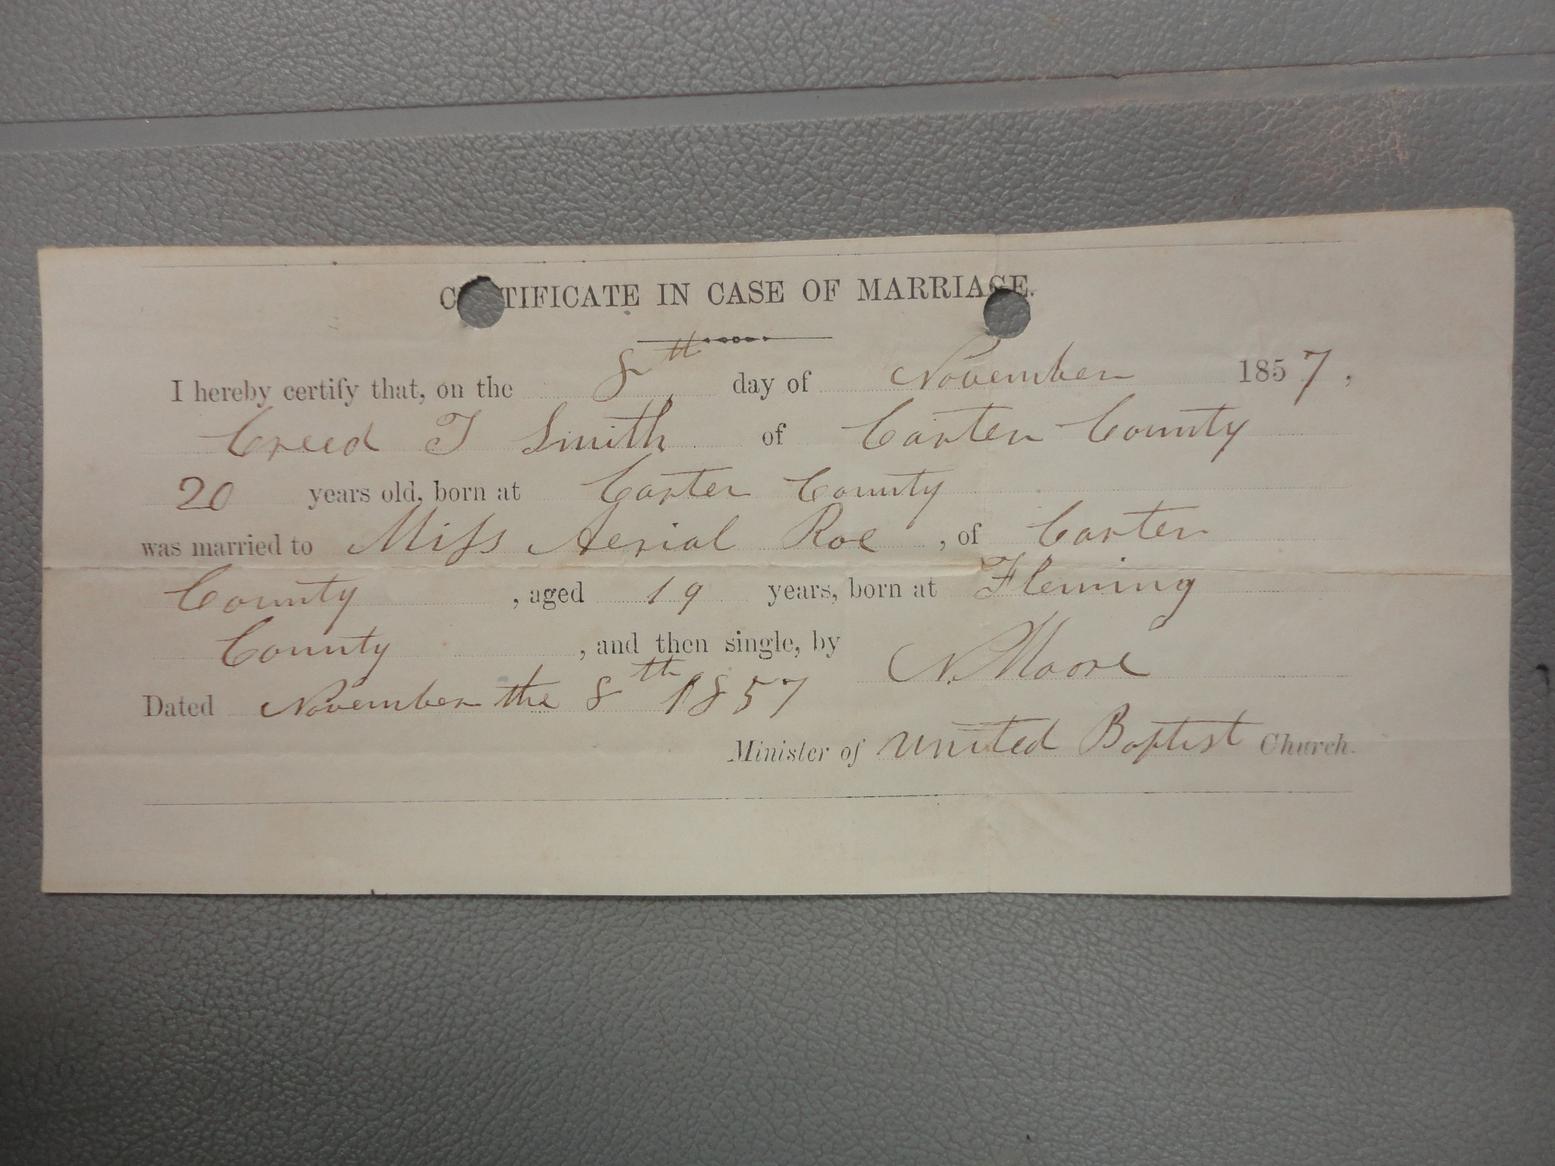 CERTIFICATE IN CASE OF MARRIAGE.
I hereby certify that, on the 8th day of November 1857,
Creed T Smith of Carter County
20 years old, born at Carter County
was married to Miss Aerial Roe, of Carter
County, aged 19 years, born at Fleming
County, and then single, by N. Moore
Dated November the 8th 1857
Minister of united Baptist Church.